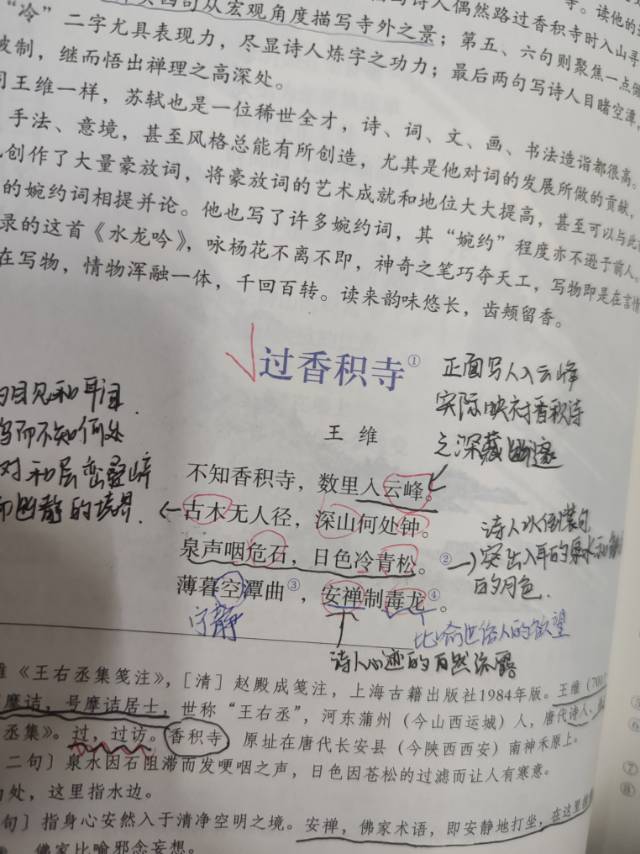 句从宏观角度描写寺外之景；第五、六句则聚焦一点
“冷”二字尤具表现力，尽显诗人炼字之功力；最后两句写诗人目睹空潭，
被制，继而悟出禅理之高深处。
同王维一样，苏轼也是一位稀世全才，诗、词、文、画、书法造诣都很高。
手法、意境，甚至风格总能有所创造，尤其是他对词的发展所做的贡献。
创作了大量豪放词，将豪放词的艺术成就和地位大大提高，甚至可以与此
的婉约词相提并论。他也写了许多婉约词，其“婉约”程度亦不逊于前人。
录的这首《水龙吟》，咏杨花不离不即，神奇之笔巧夺天工，写物即是在言情
在写物，情物浑融一体，千回百转。读来韵味悠长，齿颊留香。
过香积寺①
正面写人入云峰
实际映衬香积寺
之深藏幽邃
王 维
不知香积寺，数里入云峰。
古木无人径，深山何处钟。
泉声咽危石，日色冷青松。②
薄暮空潭曲③，安禅制毒龙④。
而幽静的境界.
突出入耳的
的月色.
宁静
比喻世俗人的欲望
诗人心迹的自然流露
《王右丞集笺注》，[清] 赵殿成笺注，上海古籍出版社1984年版。王维
摩诘，号摩诘居士，世称“王右丞”，河东蒲州（今山西运城）人，唐代诗人、
丞集》。过，过访。香积寺 原址在唐代长安县（今陕西西安）南神禾原上。
二句〕泉水因石阻滞而发哽咽之声，日色因苍松的过滤而让人有寒意。
处，这里指水边。
句〕指身心安然入于清净空明之境。安禅，佛家术语，即安静地打坐，在这里
佛家比喻邪念妄想。